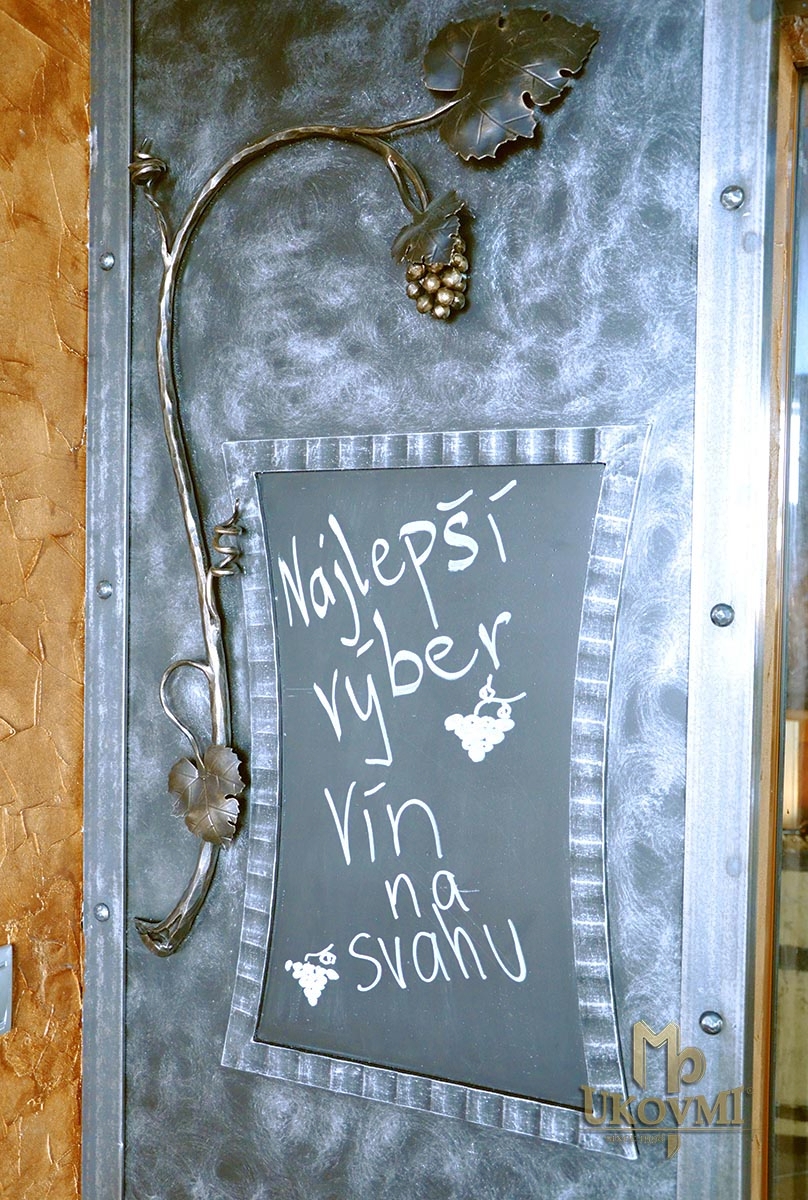 Najlepší
výber
vín
na
svahu
UKOVMI